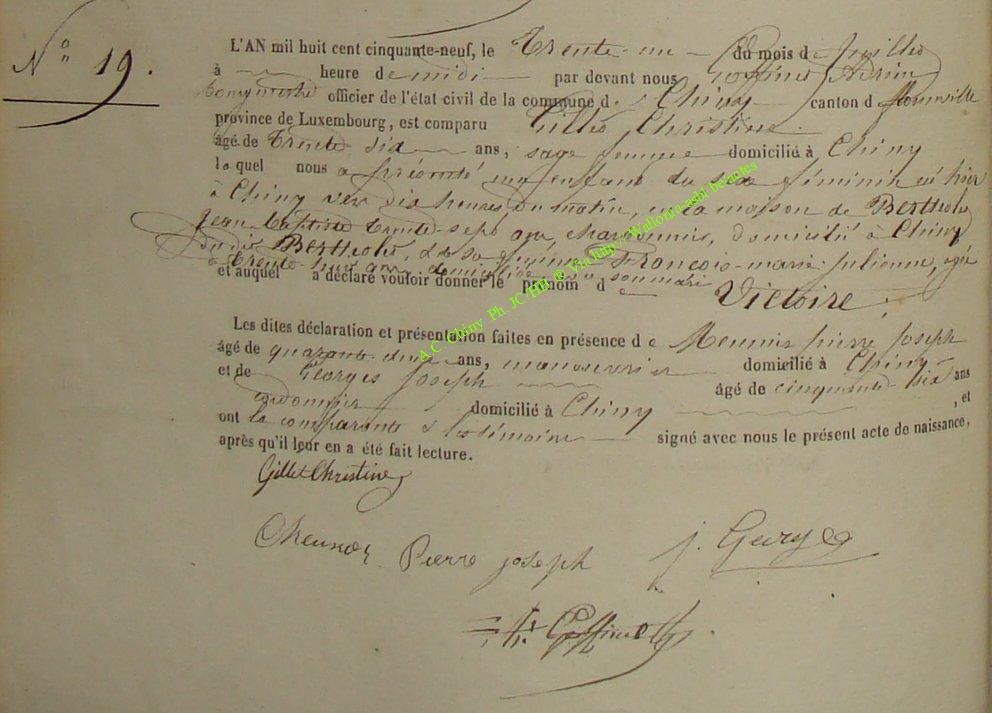 N° 19.
L'AN mil huit cent cinquante-neuf, le Trente-un du mois de juillet
à heure de midi par devant nous Coffinet
Bourgmestre officier de l'état civil de la commune de Chiny canton d
province de Luxembourg, est comparu Gillet Christine
âgé de Trente six ans, sage femme domicilié à Chiny
laquel nous a présenté un enfant du sexe féminin né hier
à Chiny vers dix heures du matin, en la maison de Bertholet
Jean Baptiste trente-sept ans charbonnier, domicilié à Chiny
du dit Bertholet, & de son épouse François-marie-julienne, agée
de trente-huit ans domiciliée
et auquel a déclaré vouloir donner le prénom de Victoire.
Les dites déclaration et présentation faites en présence de Meunier pierre Joseph
âgé de quarante deux ans, manouvrier domicilié à Chiny
et de Georges Joseph âgé de cinquante-six ans
cordonnier domicilié à Chiny , et
ont la comparante & les témoins signé avec nous le présent acte de naissance,
après qu'il leur en a été fait lecture.
Gillet Christine
Meunier Pierre joseph j. Georges
Coffinet
A.C. Chiny Ph. JC Via http://Wallonia-asbl.be/antes